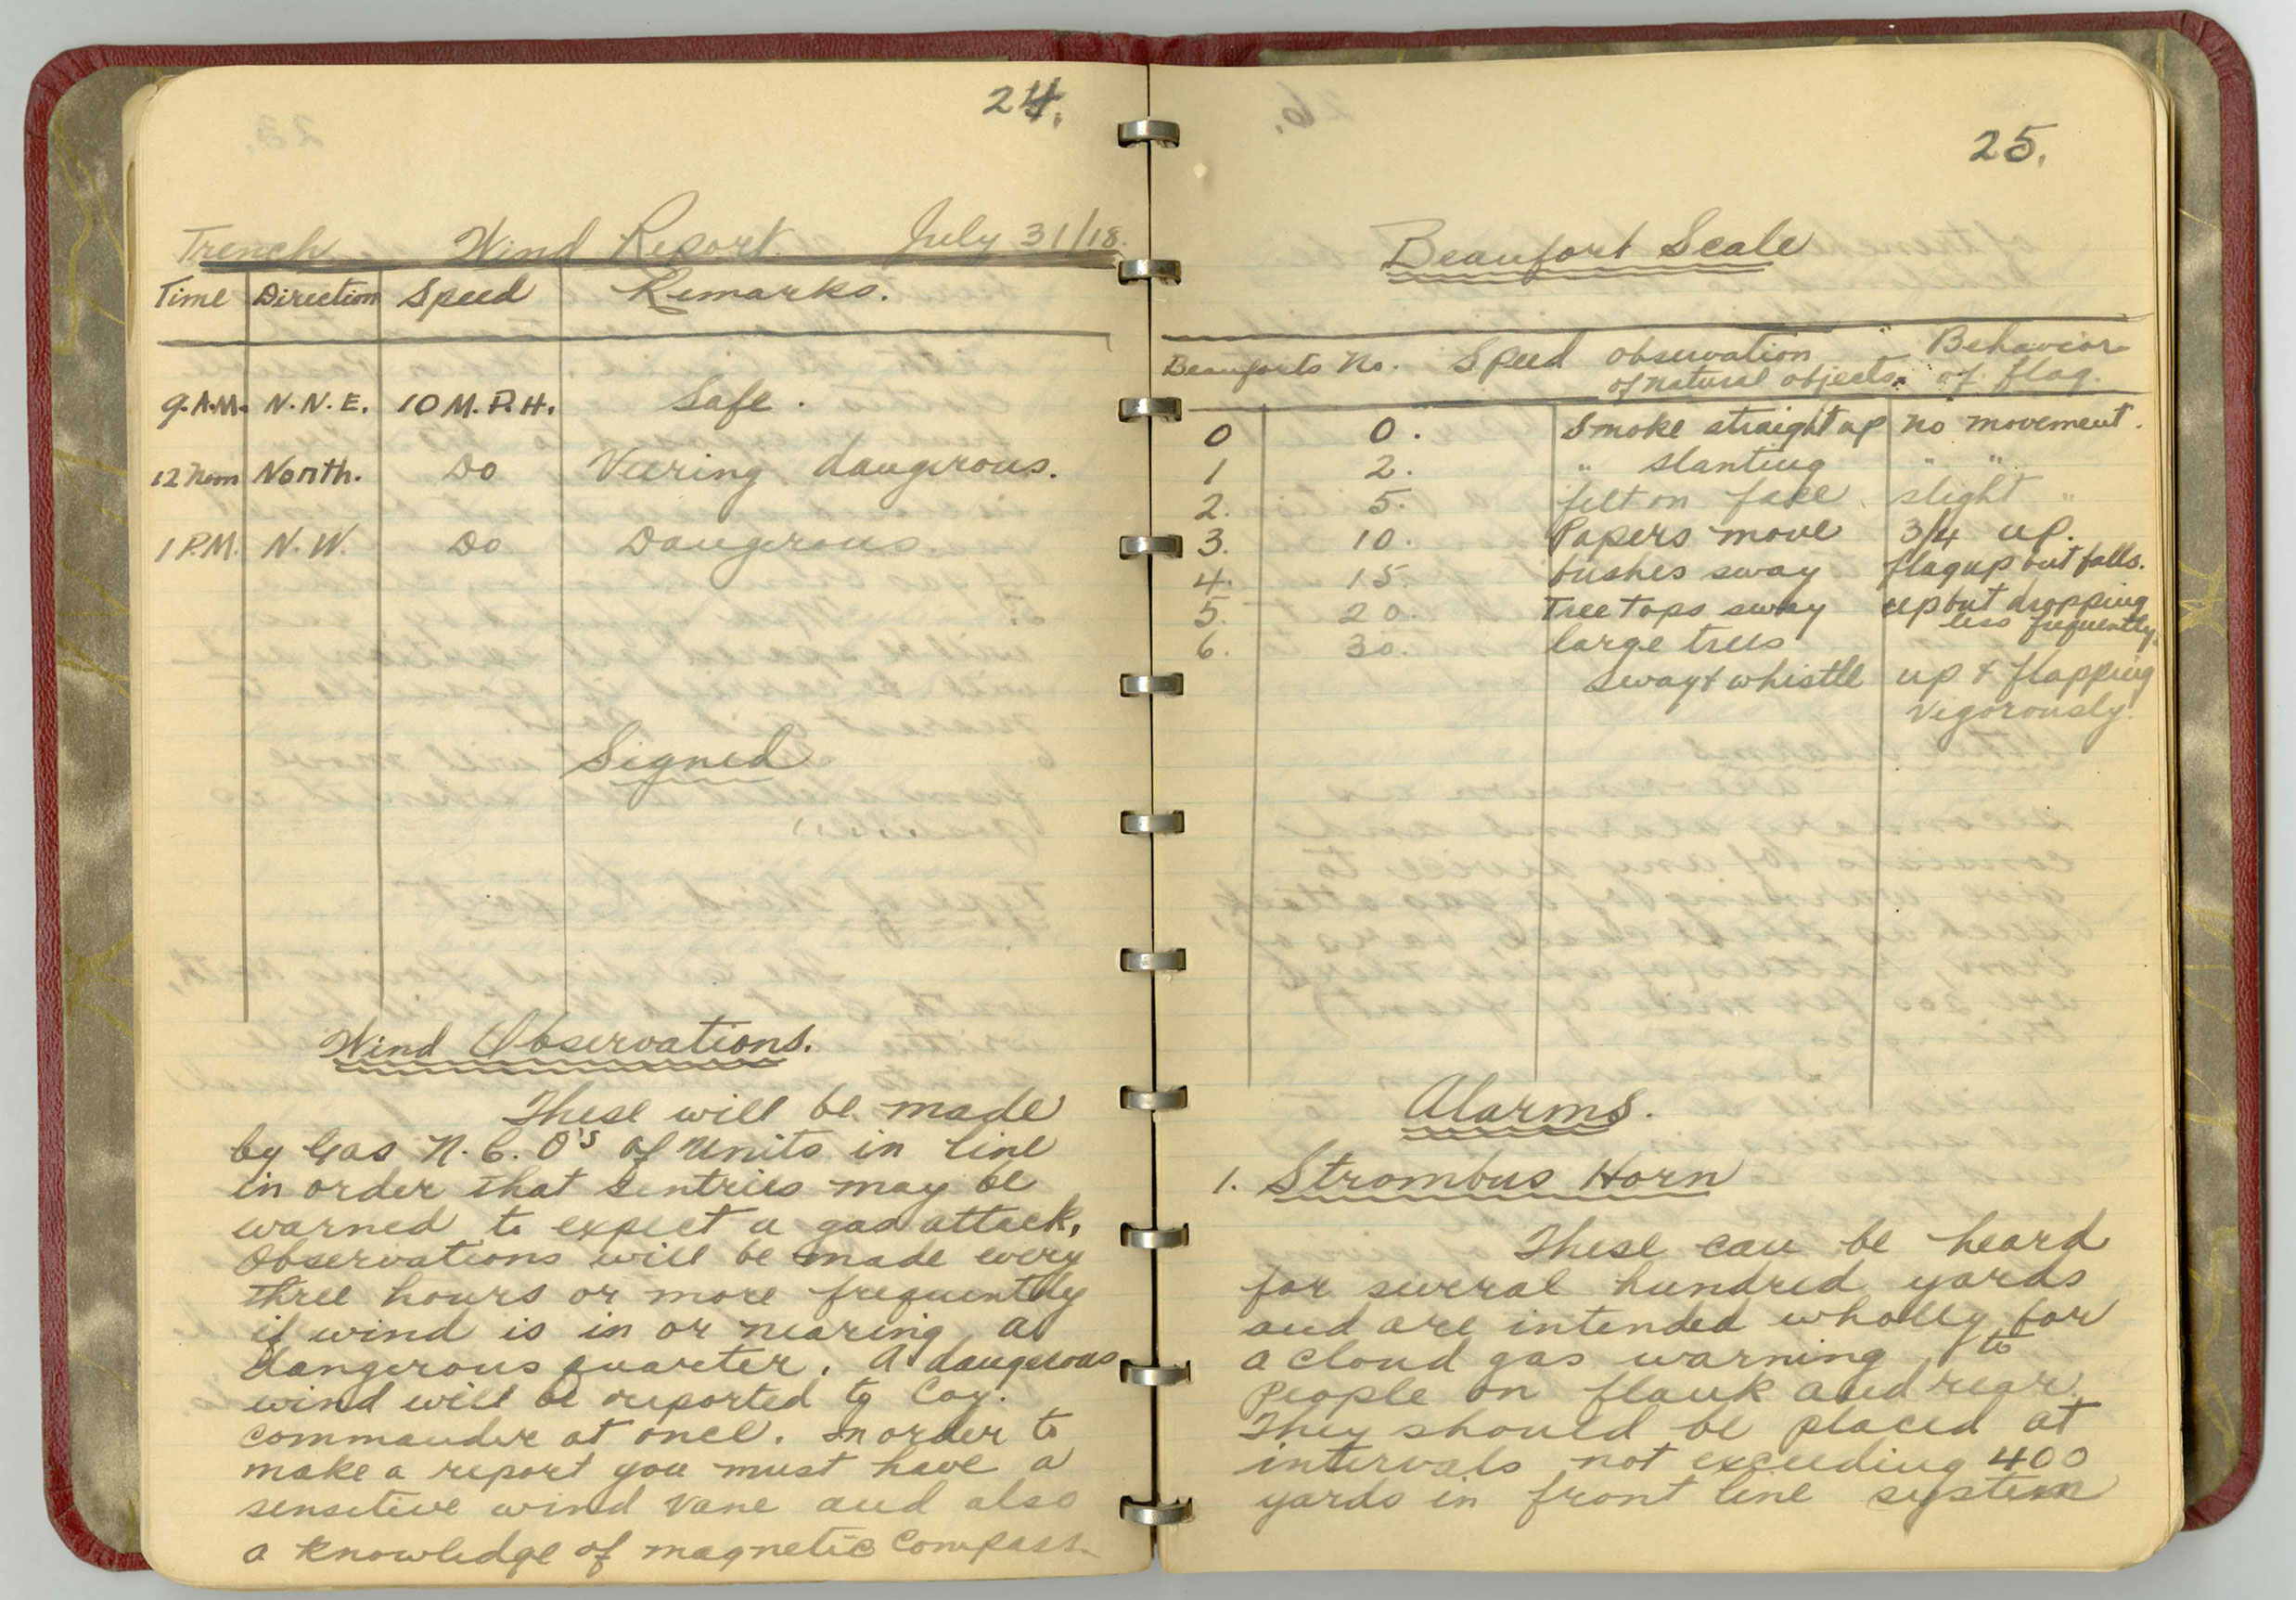 24.
Trench Wind Report July 31/18.
Time Direction Speed Remarks.
9.A.M. N.N.E. 10 M.P.H. Safe.
12 Noon North. Do Veering dangerous.
1 P.M. N.W. Do Dangerous
Signed
Wind Observations.
These will be made
by Gas N.C.O's of units in line
in order that sentries may be
warned to expect a gas attack.
Observations will be made every
three hours or more frequently
if wind is in or nearing a
dangerous quarter. A dangerous
wind will be reported to Coy.
commander at once. In order to
make a report you must have a
sensitive wind vane and also
a knowledge of magnetic compass.
25.
Beaufort Scale
Beauforts No. Speed observation Behavior
of natural objects. of flag.
0 0. Smoke straight up no movement.
1 2. " slanting " "
2. 5. felt on face slight "
3. 10. Papers move 3/4 up.
4. 15. bushes sway flag up but falls.
5. 20. Tree tops sway up but dropping
less frequently.
6. 30. large trees
sway & whistle up & flapping
vigorously.
Alarms.
1. Strombus Horn
These can be heard
for several hundred yards
and are intended wholly for
a cloud gas warning to
People on flank and rear.
They should be placed at
intervals not exceeding 400
yards in front line system